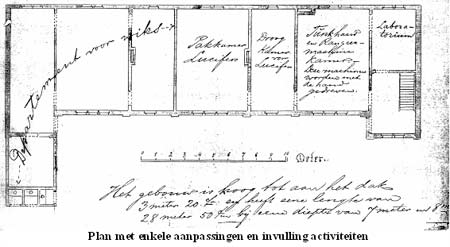 Departement voor wiks
Pakkamer
Lucifers
Droog
Kamer
voor
Lucifers
Trekband
en Rangeer
machine
Kamer.
Deze machines
worden met
de hand
gedreven.
Labora-
torium
Meter.
Het gebouw is hoog tot aan het dak
3 meter 20 en heeft eene lengte van
28 meter 50 bij eene diepte van 7 meter
Plan met enkele aanpassingen en invulling activiteiten